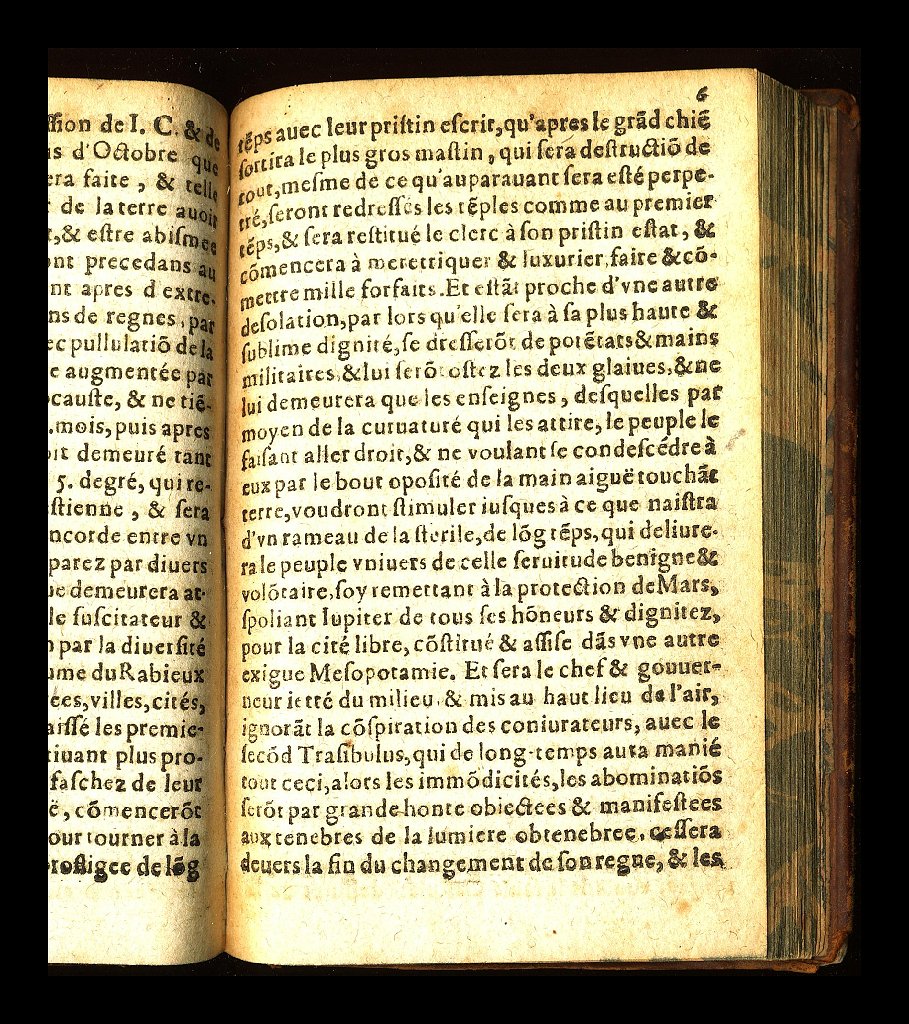 ssion de I. C. & de
is d'Octobre que
era faite, & telle
de la terre auoir
, & estre abismee
ont precedans au
nt apres d'extre-
ns de regnes, par
ec pullulatiõ de la
e augmentée par
ocauste, & ne tiẽ-
.mois, puis apres
oit demeuré tant
5. degré, qui re-
stienne, & sera
ncorde entre vn
parez par diuers
ue demeurera at-
le suscitateur &
par la diuersité
ume du Rabieux
ees, villes, cités,
aissé les premie-
iuant plus pro-
faschez de leur
ẽ, cõmencerõt
our tourner à la
rofligee de lõg
6
tẽps auec leur pristin escrit, qu'apres le grãd chiẽ
sortira le plus gros mastin, qui sera destructiõ de
tout, mesme de ce qu'auparauant sera esté perpe-
tré, seront redressés les tẽples comme au premier
tẽps, & sera restitué le clerc à son pristin estat, &
cõmencera à meretriquer & luxurier, faire & cõ-
mettre mille forfaits. Et estãt proche d'vne autre
desolation, par lors qu'elle sera à sa plus haute &
sublime dignité, se dresserõt de potẽtats & mains
militaires, & lui serõt ostez les deux glaiues, & ne
lui demeurera que les enseignes, desquelles par
moyen de la curuaturé qui les attire, le peuple le
faisant aller droit, & ne voulant se condescédre à
eux par le bout oposité de la main aiguë touchãt
terre, voudront stimuler iusques à ce que naistra
d'vn rameau de la sterile, de lõg tẽps, qui deliure-
ra le peuple vniuers de celle seruitude benigne &
volõtaire, soy remettant à la protection de Mars,
spoliant Iupiter de tous ses hõneurs & dignitez,
pour la cité libre, cõstitué & assise dãs vne autre
exigue Mesopotamie. Et sera le chef & gouuer-
neur ietté du milieu, & mis au haut lieu de l'air,
ignorãt la cõspiration des coniurateurs, auec le
secõd Trasibulus, qui de long-temps aura manié
tout ceci, alors les immõdicités, les abominatiõs
serõt par grande honte obiectees & manifestees
aux tenebres de la lumiere obtenebree, cessera
deuers la fin du changement de son regne, & les